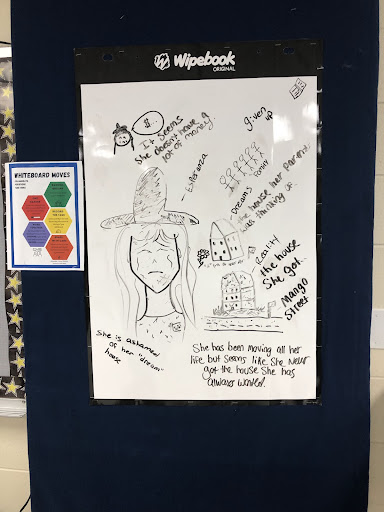 Wipebook
ORIGINAL
It seems
She doesn't have a
lot of money.
given
up
- Esperanza
WHITEBOARD MOVES
Dreams
Family
the house her Parents
was thinking of..
Reality
the house
She got...
Mango
Street
She is ashamed
of her "dream"
house
She has been moving all her
life but seems like She Never
got the house She has
always wanted.